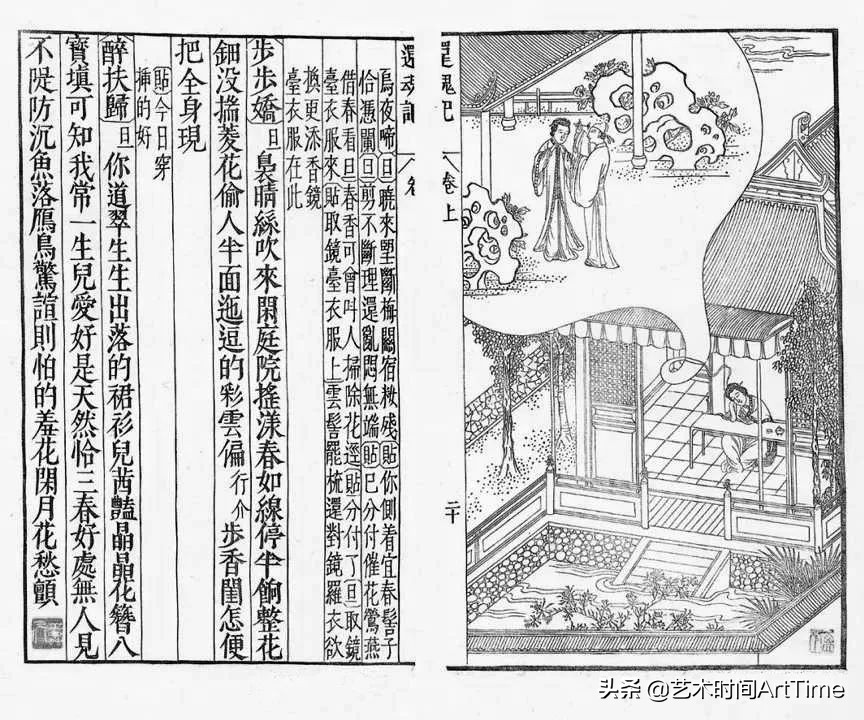 還魂記
卷上
二十
還魂記
烏夜啼旦曉來望斷梅關宿粧殘貼你側着宜春髻子
恰憑闌旦剪不斷理還亂悶無端貼已分付催花鶯燕
借春看旦春香可曾叫人掃除花逕貼分付了旦取鏡
臺衣服來貼取鏡臺衣服上雲髻罷梳還對鏡羅衣欲
換更添香鏡
臺衣服在此
步步嬌旦裊晴絲吹來閑庭院搖漾春如線停半餉整花
鈿没揣菱花偷人半面迤逗的彩雲偏行介步香閨怎便
把全身現
貼今日穿
插的好
醉扶歸旦你道翠生生出落的裙衫兒茜豔晶晶花簪八
寶填可知我常一生兒愛好是天然恰三春好處無人見
不隄防沉魚落鴈鳥驚諠則怕的羞花閉月花愁顫
头条 @艺术时间ArtTime